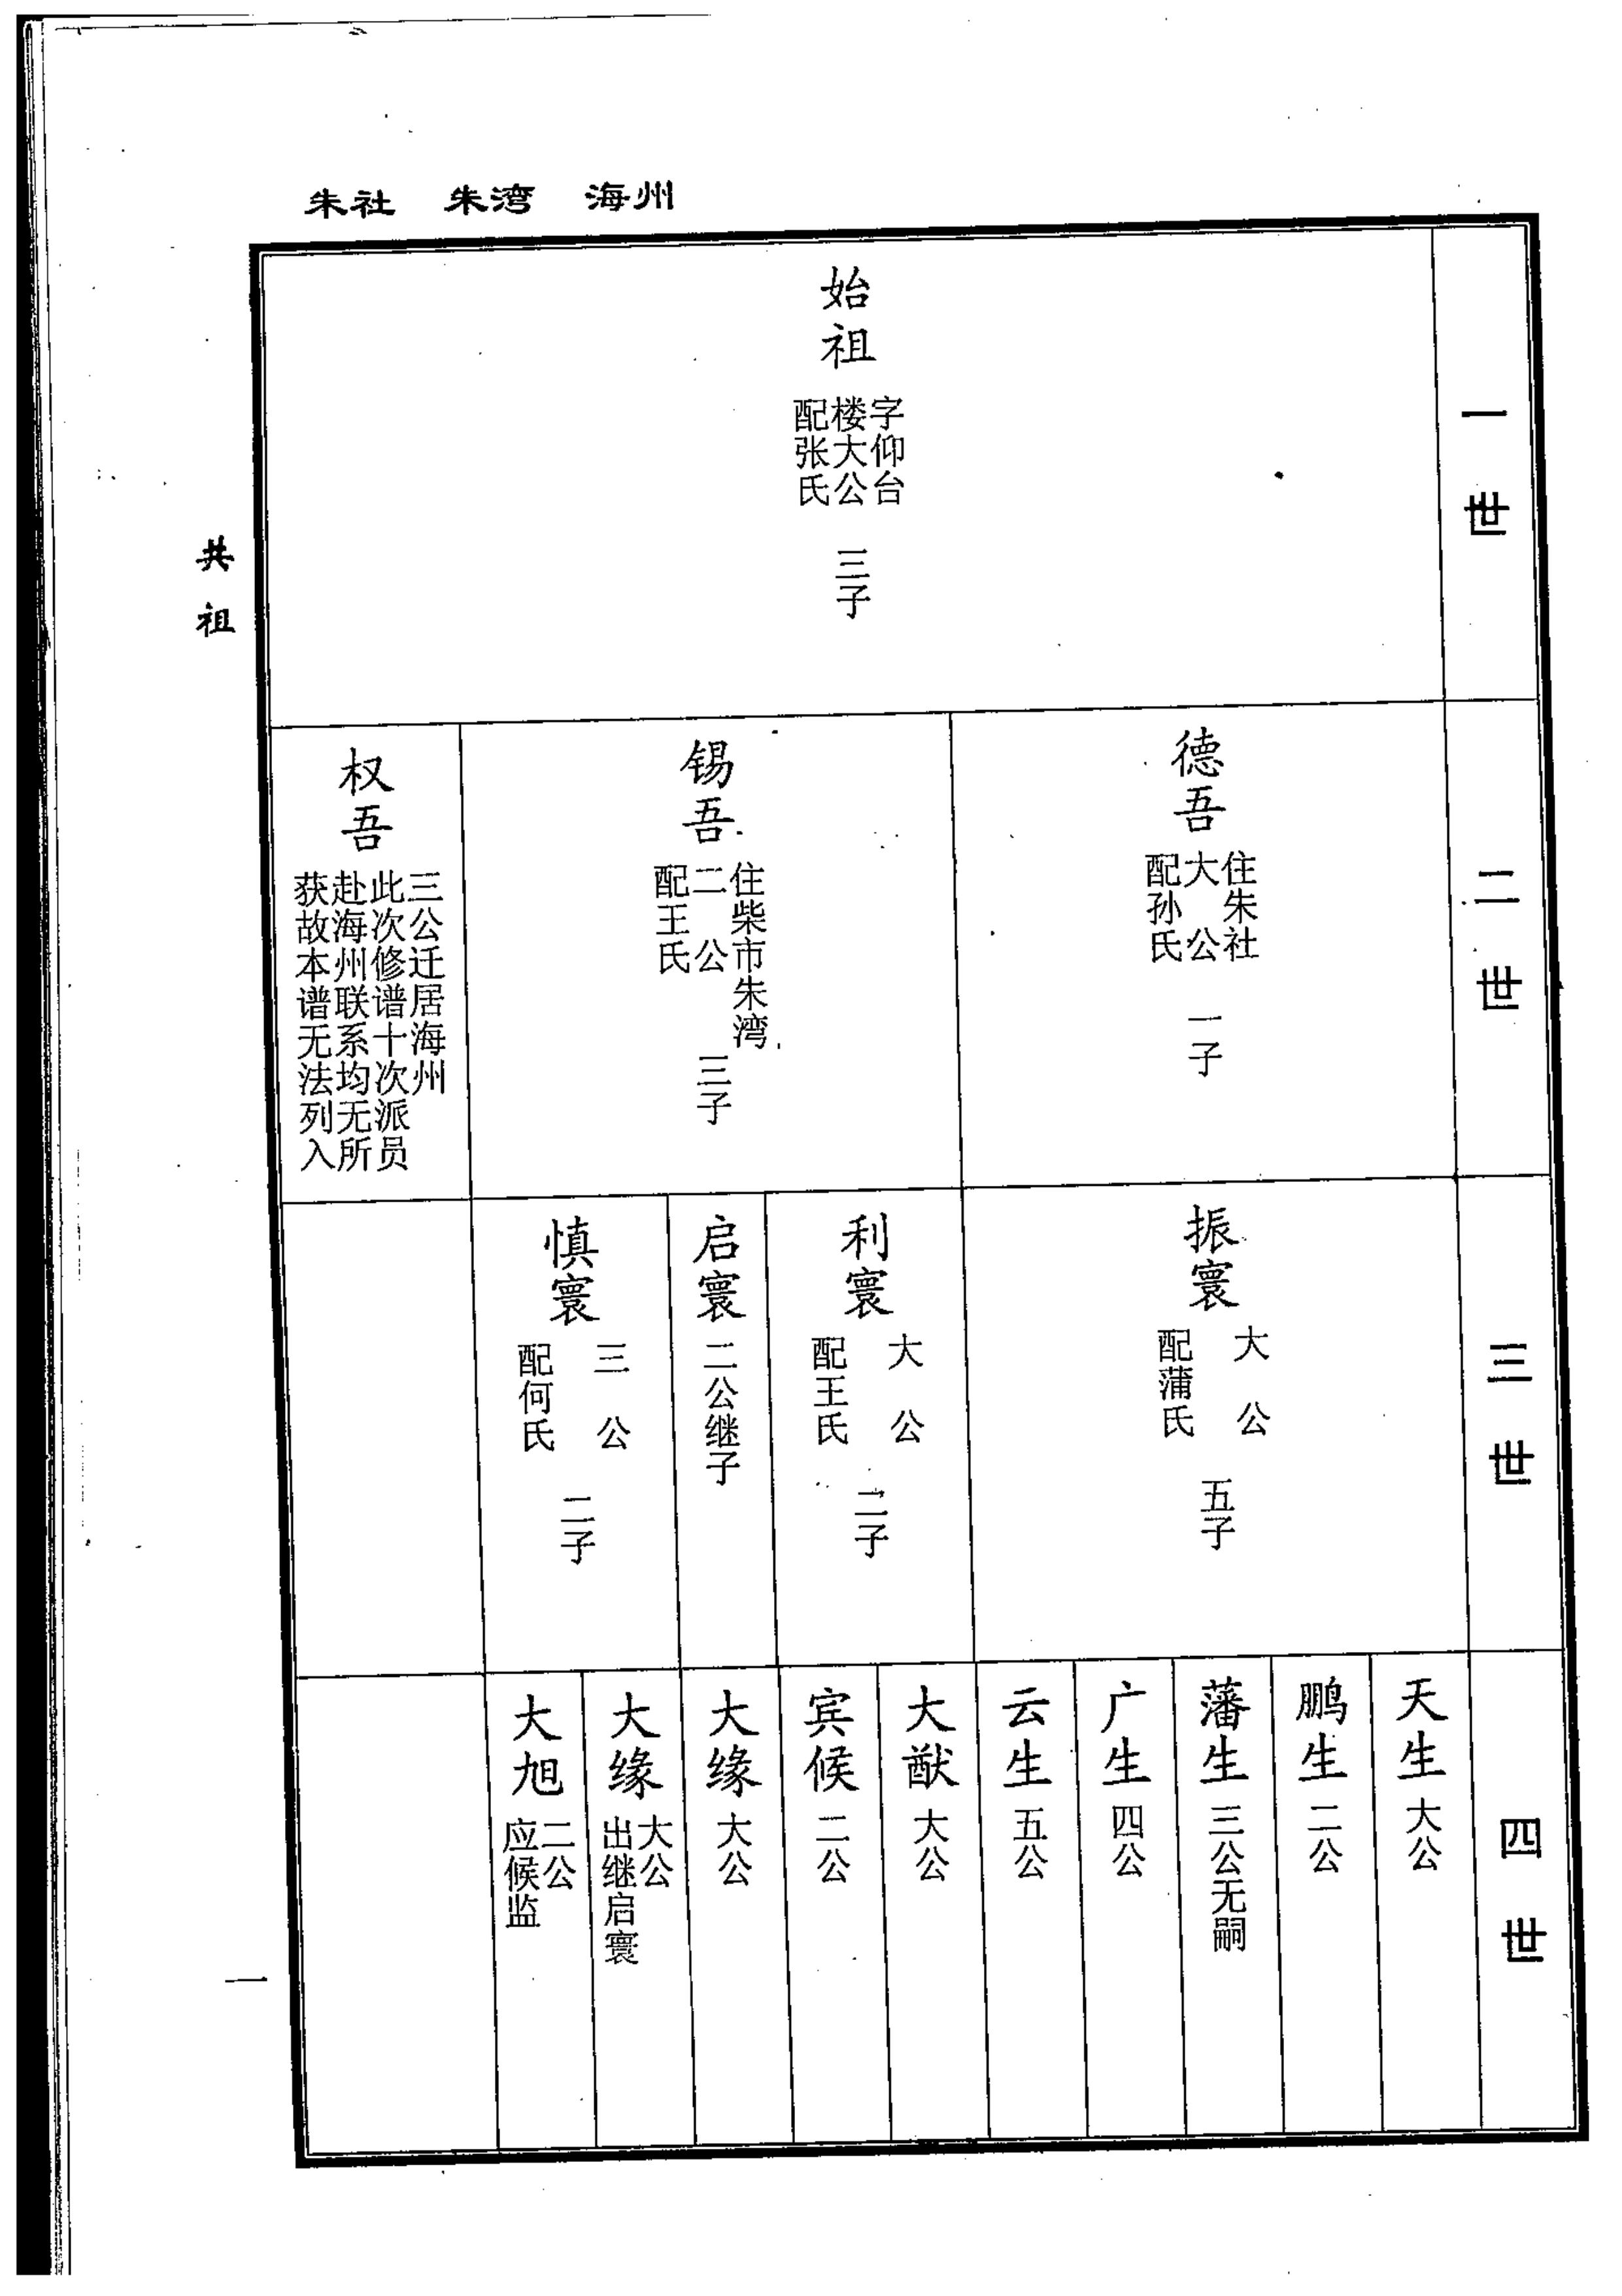 朱社 朱湾 海州
共祖
一世
始祖
字仰台
楼大公 三子
配张氏
二世
德吾
住朱社
大公 一子
配孙氏
锡吾
住柴市朱湾
二公 三子
配王氏
权吾
三公迁居海州
此次修谱十次派员
赴海州联系均无所
获故本谱无法列入
三世
振寰
大公
配蒲氏
五子
利寰
大公
配王氏
二子
启寰
二公继子
慎寰
三公
配何氏
二子
四世
天生
大公
鹏生
二公
藩生
三公无嗣
广生
四公
云生
五公
大猷
大公
宾候
二公
大缘
大公
大缘
大公
出继启寰
大旭
二公
应候监
一